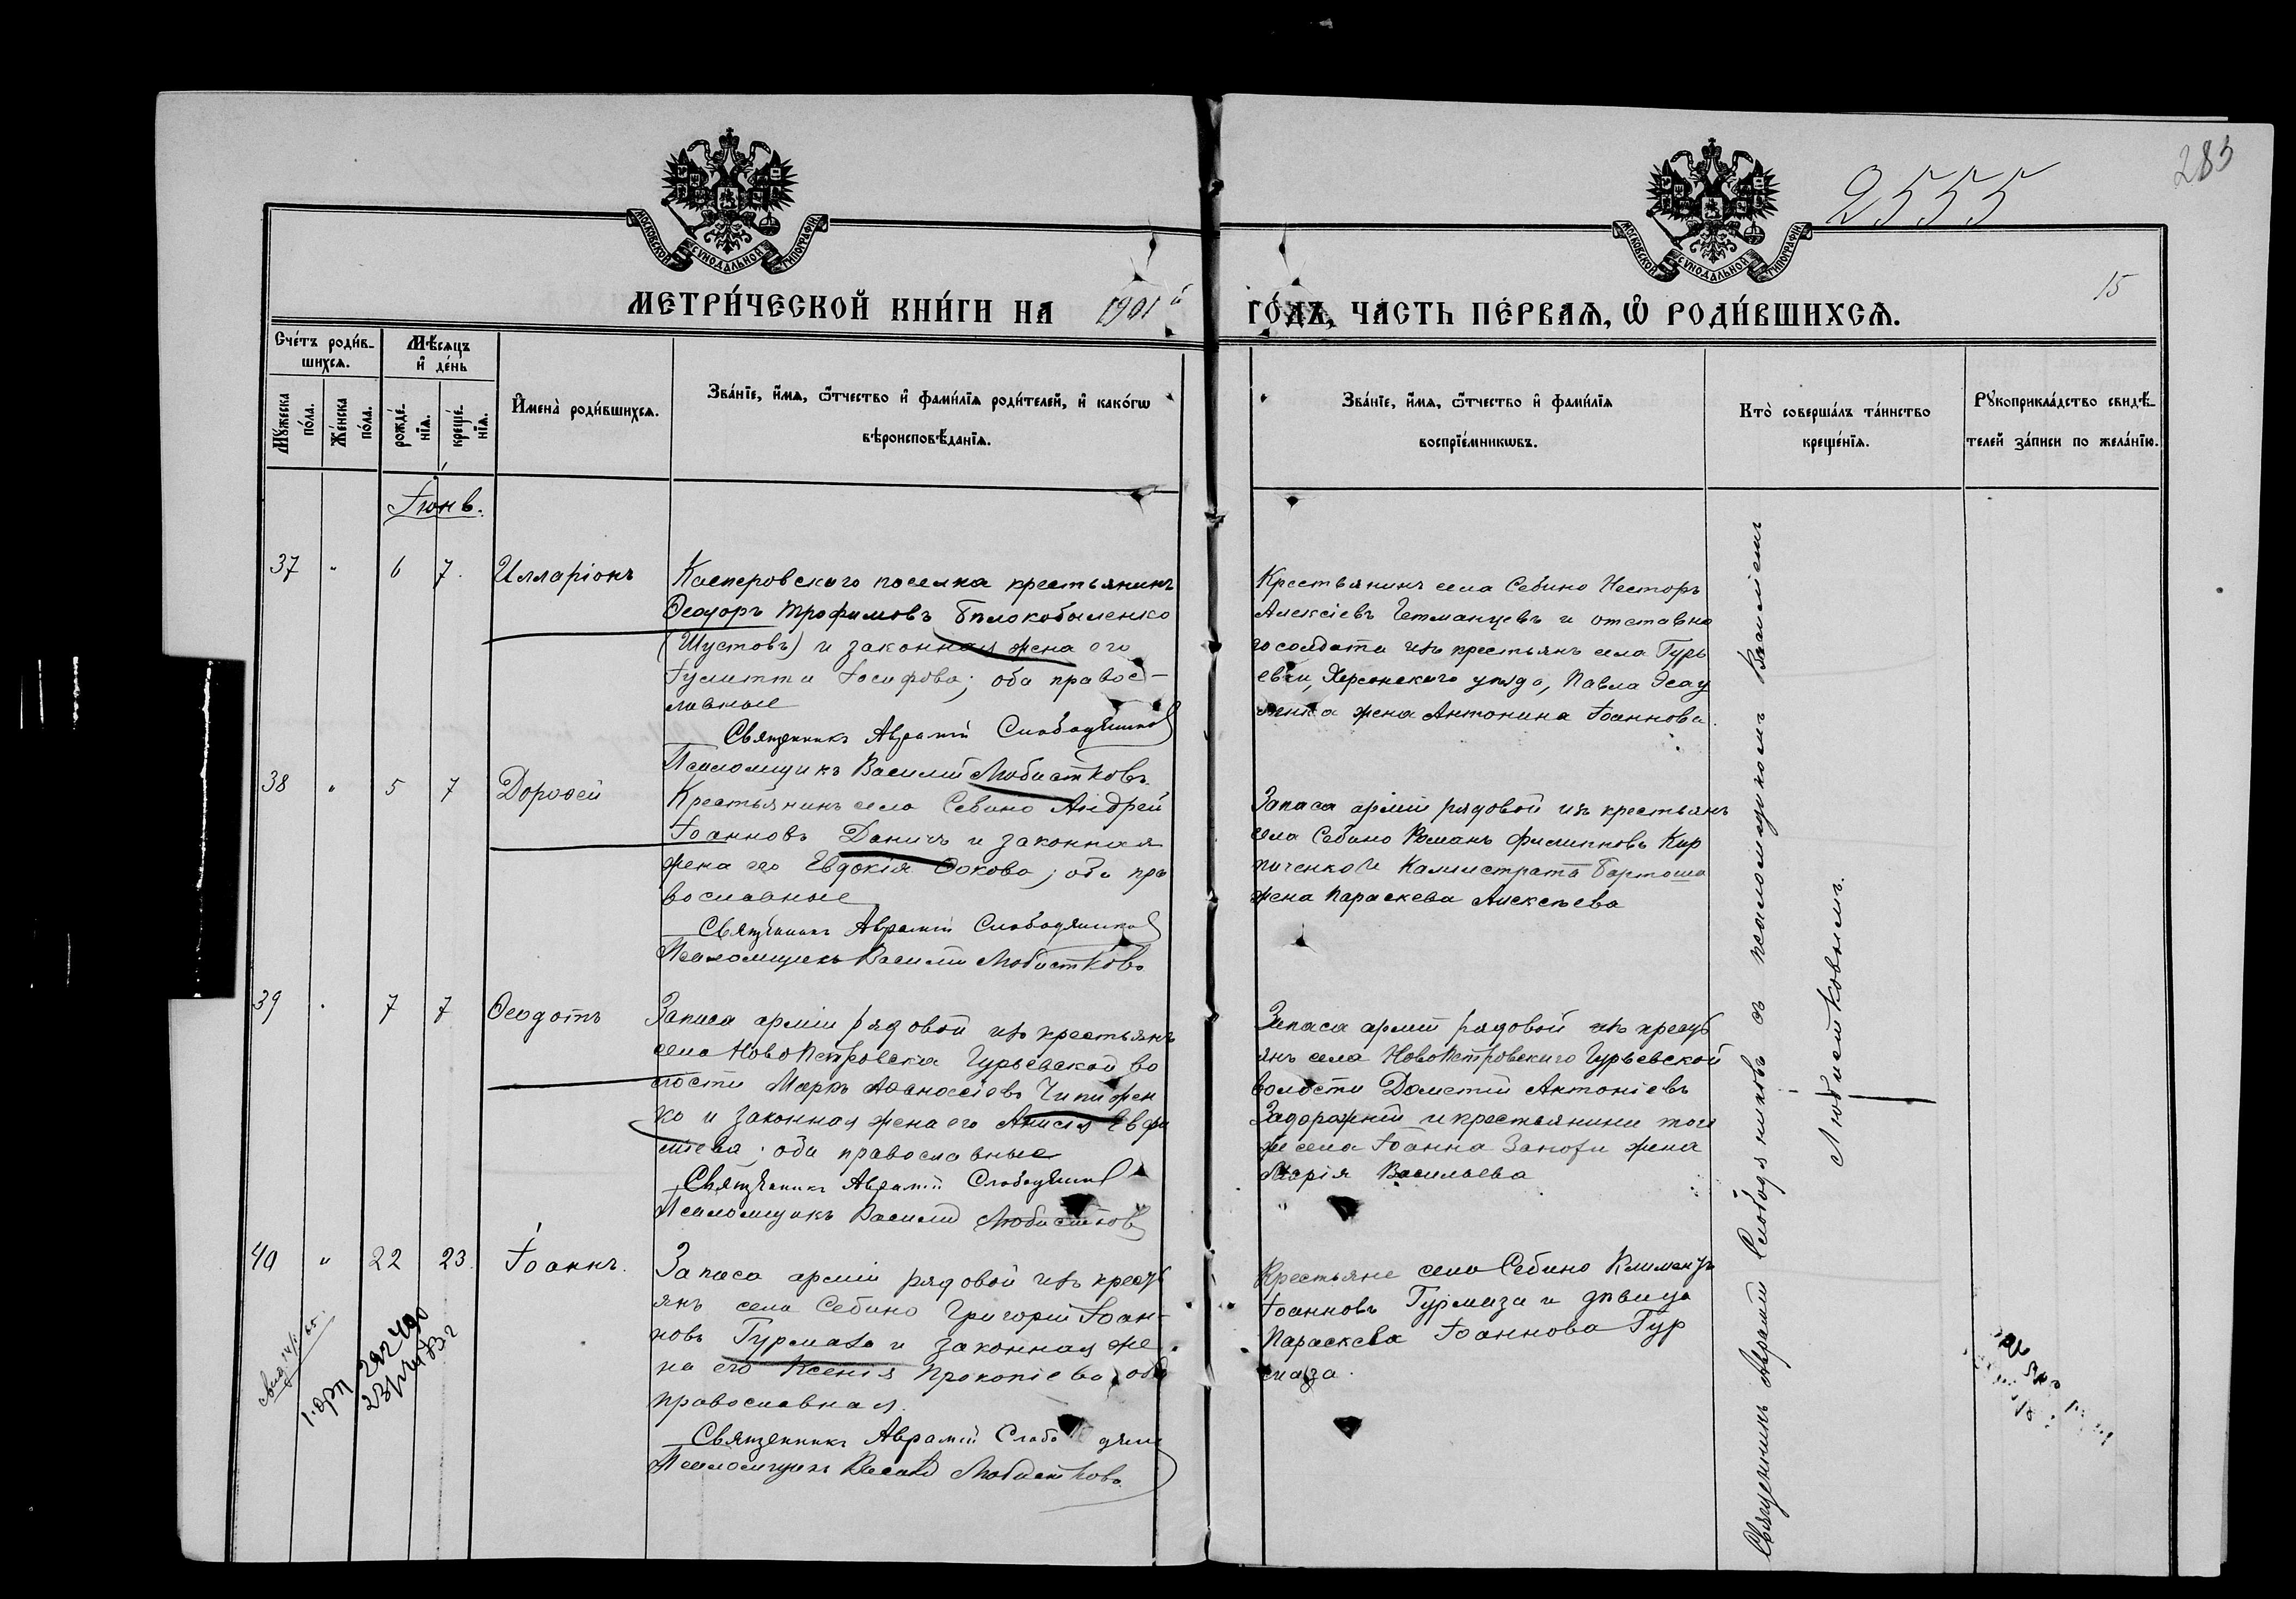 2555
283
15
МОСКОВСКОЙ СѴНОДАЛЬНОЙ ТИПОГРАФІИ
МОСКОВСКОЙ СѴНОДАЛЬНОЙ ТИПОГРАФІИ
МЕТРИ́ЧЕСКОЙ КНИ́ГИ НА 1901й ГО́ДЪ, ЧА́СТЬ ПЕ́РВАѦ, Ѡ҆ РОДИ́ВШИХСѦ.
Сче́тъ роди́в-
шихсѧ.
Мꙋ́жеска
по́ла.
Же́нска
по́ла.
Мѣ́сѧцъ
и҆ де́нь
рожде́-
нїѧ.
креще́-
нїѧ.
И҆мена̀ роди́вшихсѧ.
Зва́нїе, и҆́мѧ, ѻ҆́тчество и҆ фами́лїѧ роди́телей, и҆ како́гѡ
вѣроисповѣ́данїѧ.
Зва́нїе, и҆́мѧ, ѻ҆́тчество и҆ фами́лїѧ
воспрїе́мникѡвъ.
Кто̀ соверша́лъ та́инство
креще́нїѧ.
Рꙋкоприкла́дство свидѣ́-
телей за́писи по жела́нїю.
Іюнь.
37 " 6 7. Илларіонъ
Касперовскаго поселка крестьянинъ
Ѳеодоръ Трофимовъ Бѣлокобыленко
(Шустовъ) и законная жена его
Іулитта Іосифова; оба правос-
лавные
Священникъ Аврамій Слободяниковъ
Псаломщикъ Василій Любистковъ
Крестьянинъ села Себино Несторъ
Алексіевъ Гетманцевъ и отставна
го солдата изъ крестьянъ села Гурь
евки, Херсонскаго уѣзда, Павла Эсау
ленка жена Антонина Іоаннова.
38 " 5 7 Дороѳей
Крестьянинъ села Себино Андрей
Іоанновъ Даничъ и законная
жена его Евдокія Фокова; оба пра
вославные
Священникъ Аврамій Слободяниковъ
Псаломщикъ Василій Любистковъ
Запаса арміи рядовой изъ крестьянъ
села Себино Романъ Филипповъ Кир
пиченко и Каллистрата Бартоша
жена Параскева Алексѣева
39 " 7 7 Ѳеодотъ
Запаса арміи рядовой изъ крестьянъ
села НовоПетровска Гурьевской во
лости Маркъ Аѳанасіевъ Чипижен
ко и законная жена его Анисія Евфи
міева; оба православные
Священникъ Аврамій Слободяниковъ
Псаломщикъ Василій Любистковъ
Запаса арміи рядовой изъ кресть
янъ села НовоПетровскаго Гурьевской
волости Дометій Антоніевъ
Задорожній и крестьянина того
же села Іоанна жена
Марія Васильева
40 " 22 23. Іоаннъ.
Запаса арміи рядовой изъ кресть
янъ села Себино Григорій Іоан-
новъ Гурмаза и законная же
на его Ксенія Прокопіева, оба
православная.
Священникъ Аврамій Слободяник
Псаломщикъ Василій Любистковъ
Крестьяне села Себино Климентъ
Іоанновъ Гурмаза и дѣвица
Параскева Іоаннова Гур
маза.
Священникъ Аврамій Слободяниковъ съ псаломщикомъ Василіемъ
Любистковымъ.